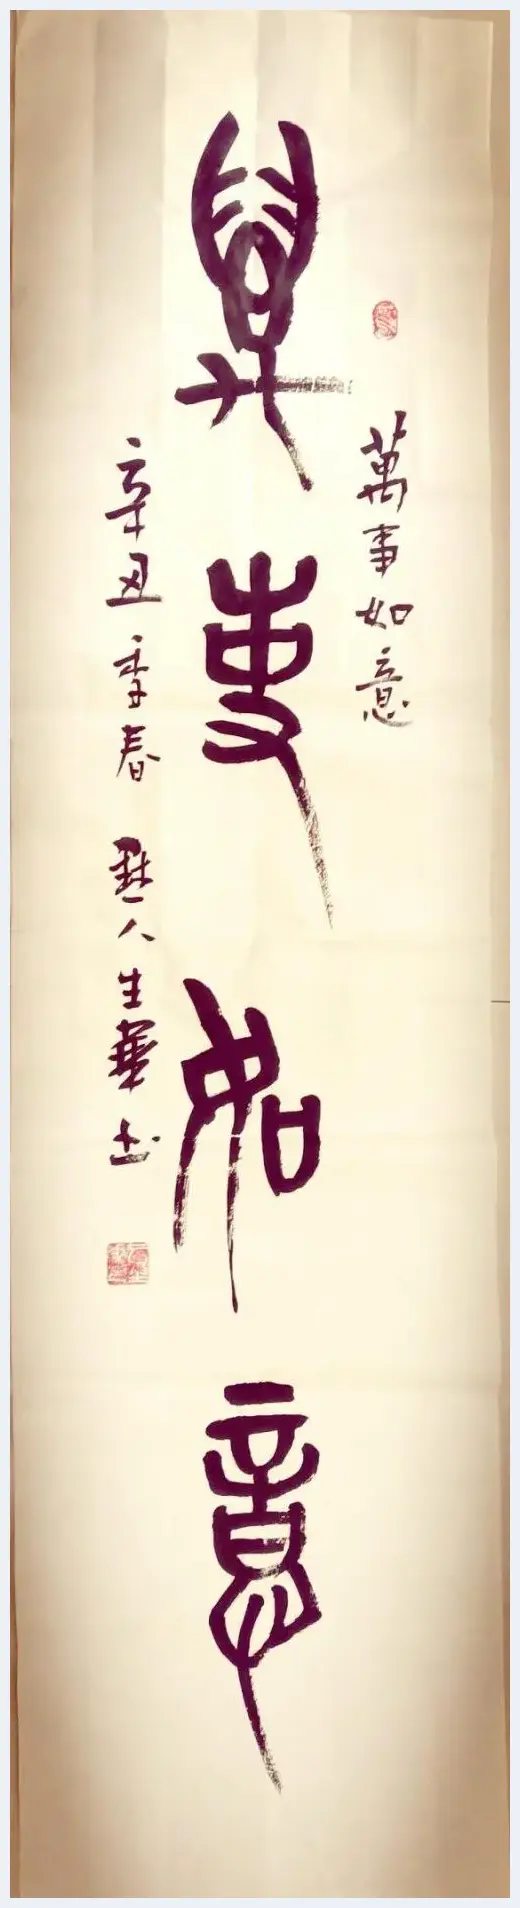 萬事如意
萬事如意
辛丑季春 人生華书